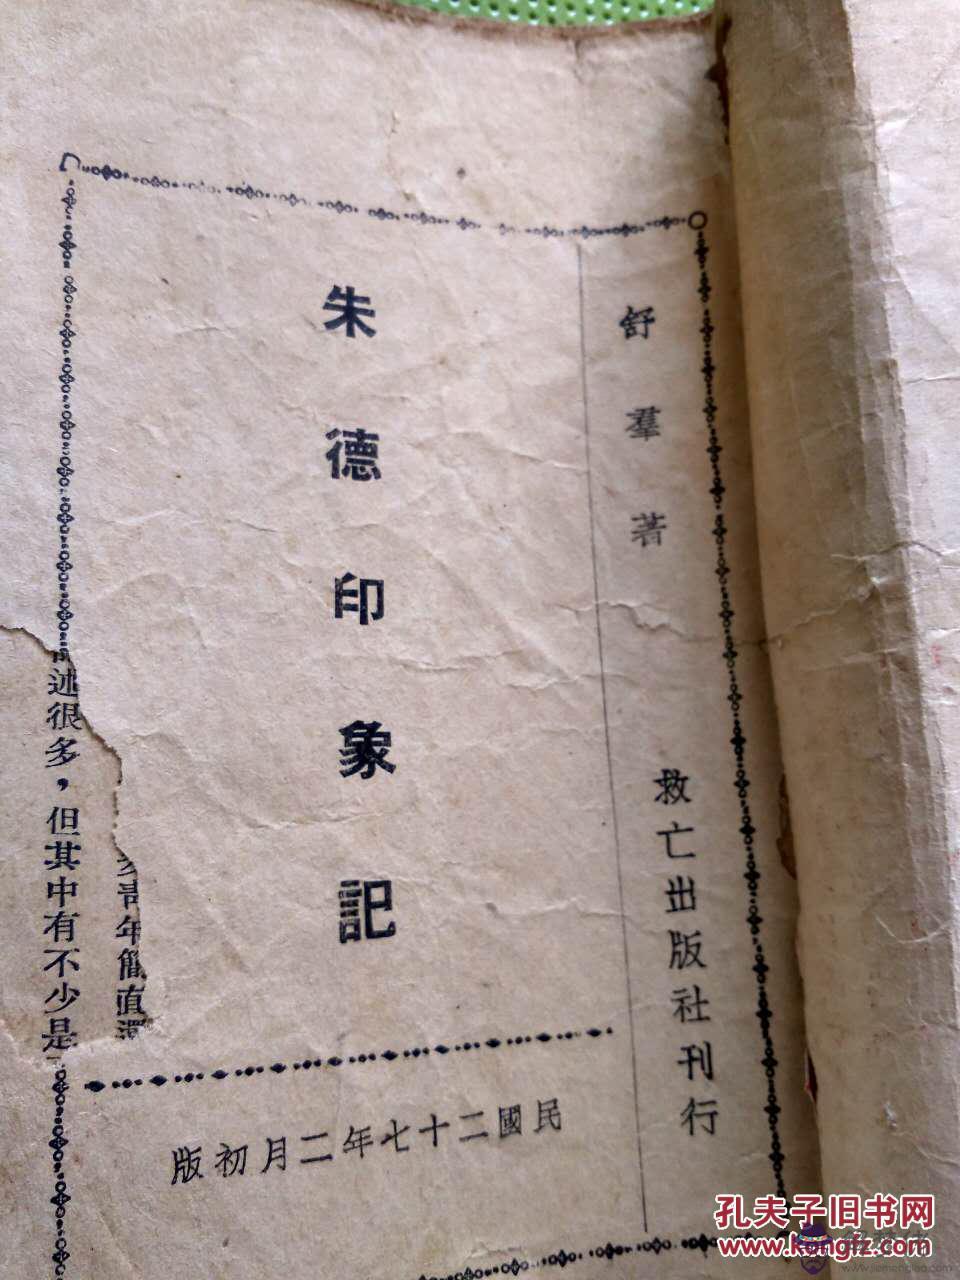 舒羣著
救亡出版社刊行
朱德印象記
民國二十七年二月初版
青年簡直還
述很多，但其中有不少是
孔夫子旧书网
www.kongfz.com